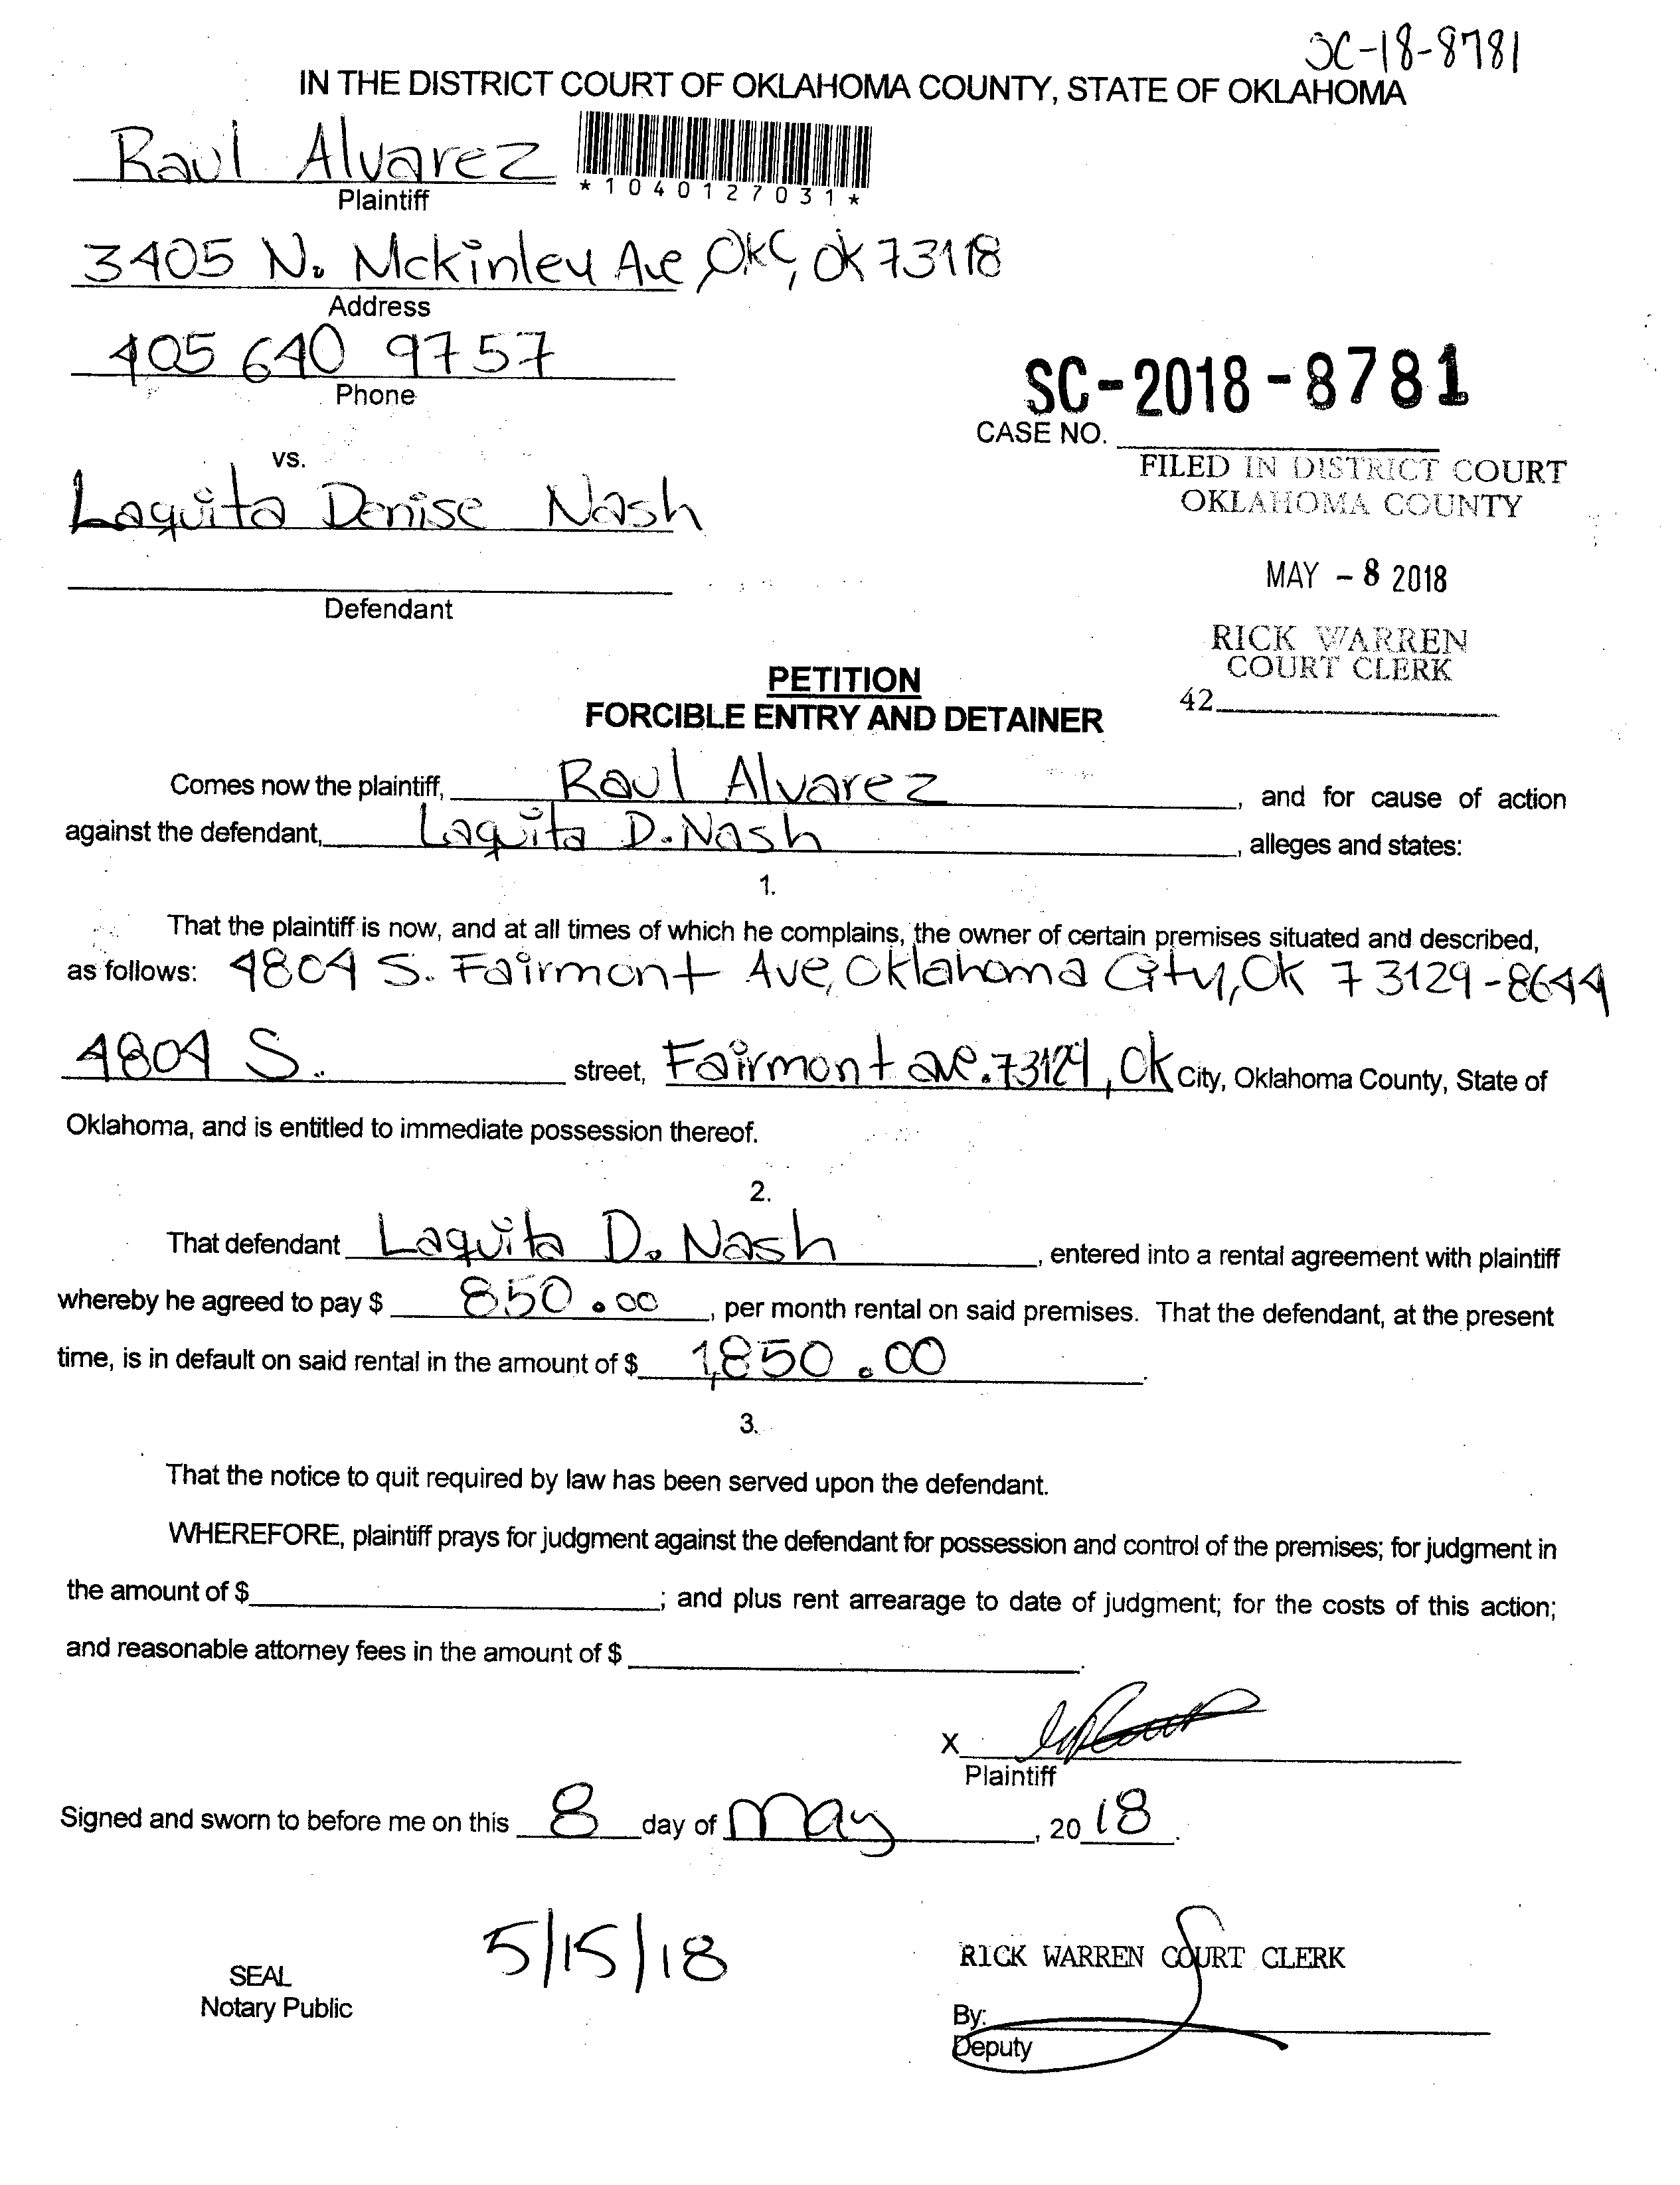 SC-18-8781
IN THE DISTRICT COURT OF OKLAHOMA COUNTY, STATE OF OKLAHOMA
Raul Alvarez
*1040127031*
Plaintiff
3405 N. Mckinley Ave, OKC, OK 73118
Address
405 640 9757
Phone
SC-2018-8781
CASE NO.
vs.
FILED IN DISTRICT COURT
OKLAHOMA COUNTY
Laquita Denise Nash
MAY - 8 2018
Defendant
RICK WARREN
COURT CLERK
42
PETITION
FORCIBLE ENTRY AND DETAINER
Comes now the plaintiff, Raul Alvarez, and for cause of action
against the defendant, Laquita D. Nash, alleges and states:
1.
That the plaintiff is now, and at all times of which he complains, the owner of certain premises situated and described,
as follows: 4804 S. Fairmont Ave, Oklahoma City, OK 73129-8644
4804 S. street, Fairmont ave. 73129, OK City, Oklahoma County, State of
Oklahoma, and is entitled to immediate possession thereof.
2.
That defendant Laquita D. Nash, entered into a rental agreement with plaintiff
whereby he agreed to pay $ 850.00, per month rental on said premises. That the defendant, at the present
time, is in default on said rental in the amount of $ 1,850.00.
3.
That the notice to quit required by law has been served upon the defendant.
WHEREFORE, plaintiff prays for judgment against the defendant for possession and control of the premises; for judgment in
the amount of $ ; and plus rent arrearage to date of judgment; for the costs of this action;
and reasonable attorney fees in the amount of $ .
X
Plaintiff
Signed and sworn to before me on this 8 day of May, 2018.
5/15/18
RICK WARREN COURT CLERK
SEAL
Notary Public
By:
Deputy